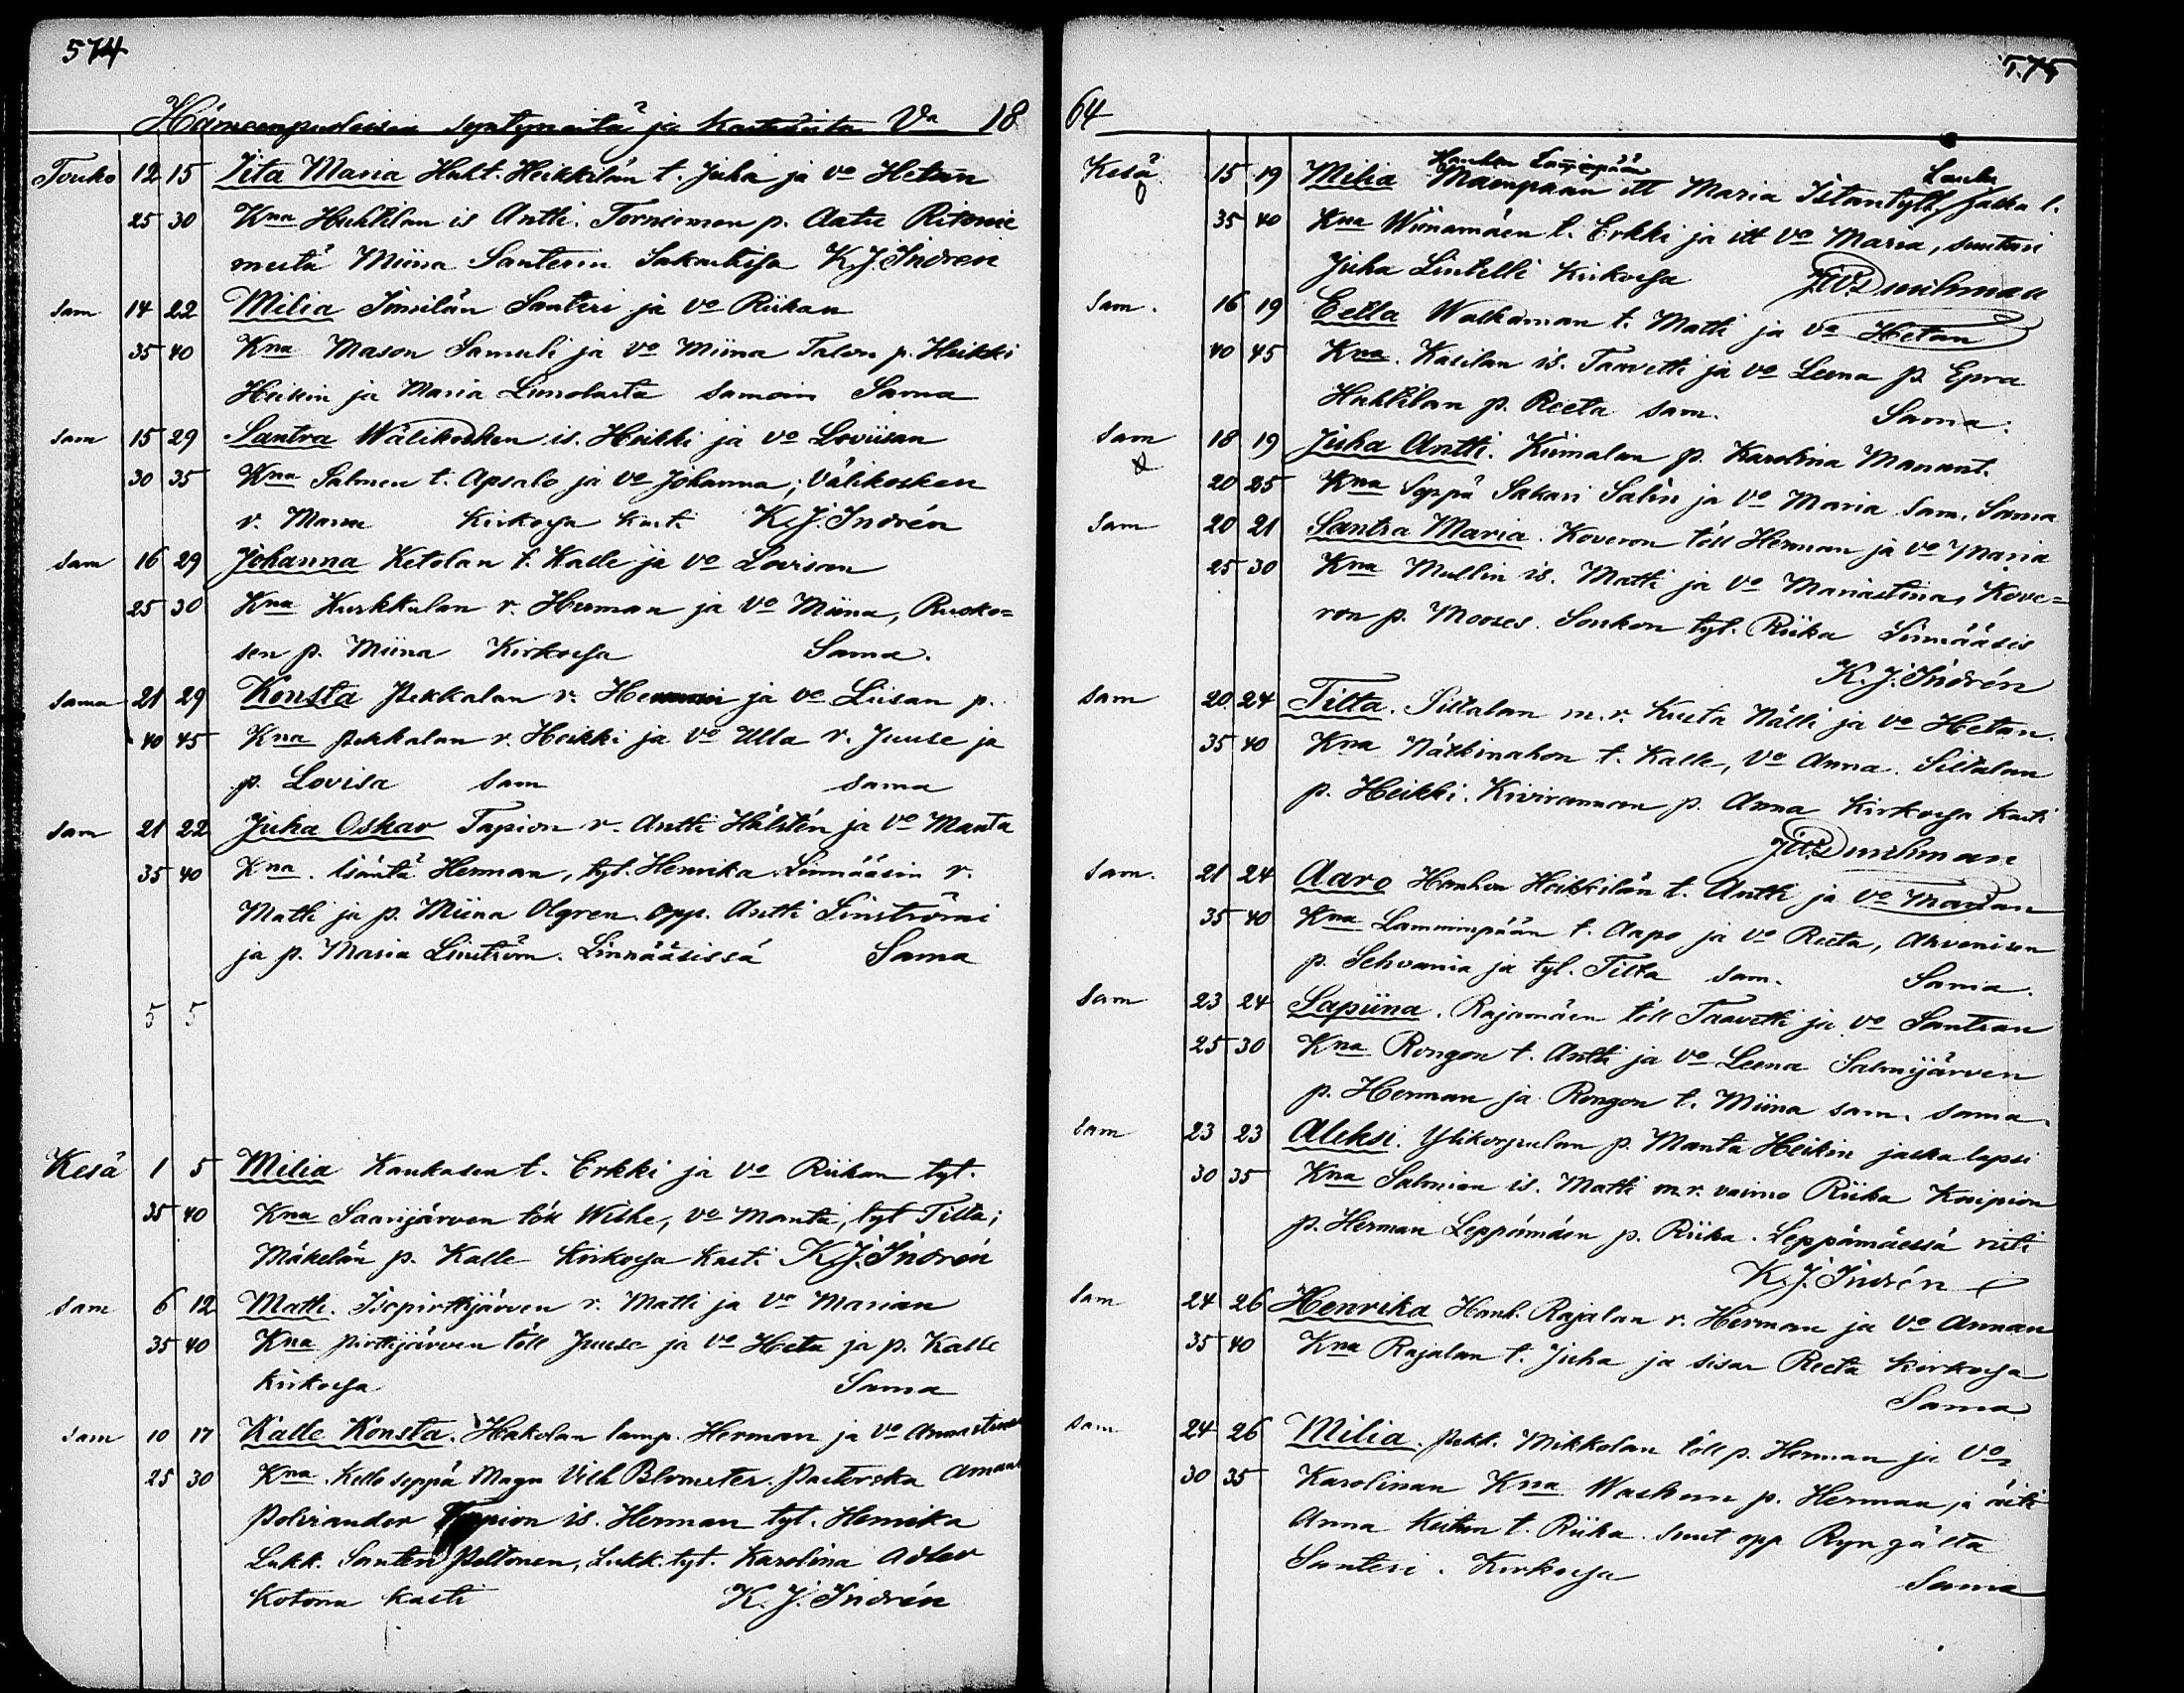 574
Hämeenpuolessa syntyneitä ja kastetuita Vna 18
Touko 12 15 Iita Maria Huht. Heikkilän t. Juha ja vo Hetan
25 30 Kna Huhtilan is Antti. Torniemen p. Aatu
mestä Miina Santerin K. J. Indrén
sam 14 22 Milia Santeri ja vo Riikan
35 40 Kna Mason Samuli ja vo Miina Talon p. Heikki
Heikin ja Maria samoin Sama
sam 15 29 Santra Wälikosken is. Heikki ja vo Loviisan
30 35 Kna Salmen t. Apsalo ja vo Johanna; Välikosken
v. Maria Kirkossa kast. K. J. Indrén
sam 16 29 Johanna Ketolan t. Kalle ja vo Lovisan
25 30 Kna Kurkkulan r. Herman ja vo Miina, Ruoko=
sen p. Miina Kirkossa Sama.
sama 21 29 Konsta Pekkalan r. ja vo Liisan p.
40 45 Kna Pekkalan r. Heikki ja vo Ulla r. Juuse ja
p. Lovisa sam sama
sam 21 22 Juha Oskar Tapion r. Antti Hälstén ja vo Manta
35 40 Kna. Isäntä Herman, tyt. Henrika Linnääsin r.
Matti ja p. Miina Olgren. opp. Antti Linströmi
ja p. Maria Linström. Linnääsissä Sama
5 5
Kesä 1 5 Milia Kaukasen t. Erkki ja vo Riikan tyt.
35 40 Kna Saarijärven töll Wilhe, vo Manta, tyt Tilta;
Mäkelän p. Kalle kirkossa kasti K. J. Indrén
sam 6 12 Matti. Isopirttijärven r. Matti ja vo Marian
35 40 Kna pirttijärven töll Juuse ja vo Heta ja p. Kalle
kirkossa Sama
sam 10 17 Kalle Konsta. Hakolan lamp. Herman ja vo Annastiina
25 30 Kna. Kello seppä Magn Vilh Blomster. Pastorska Amanda
Polviander Tapion is. Herman tyt. Henrika
Lukk. Santeri Peltonen, Lukk. tyt. Karolina Adler
Kotona kasti K. J. Indrén
64
575
Hauhon Lammipään
Kesä 15 19 Milia Mäenpään itt Maria Iitantytt. Jalka l.
35 40 Kna Wiinamäen t. Erkki ja itt vo Maria, suutari
Juha Lintelli Kirkossa
Sam. 16 19 Eella Walkaman t. Matti ja vo Hetan
40 45 Kna. Kasilan is. Taavetti ja vo Leena p. Epra
Huhtilan p. Reeta sam. Sama.
Sam 18 19 Juha Antti. Kiimalan p. Karolina Manant.
20 25 Kna Seppä Sakari Salin ja vo Maria sam. Sama
Sam 20 21 Santra Maria. Koveron töll Herman ja vo Maria
25 30 Kna Mullin is. Matti ja vo Mariastiina, Kove=
ron p. Mooses. Sonkon tyt. Riika Linnääsis
K. J. Indrén
Sam 20 24 Tilta. Siltalan m.r. Kusta Nälli ja vo Hetan.
35 40 Kna Nälkinahon t. Kalle, vo Anna. Siltalan
p. Heikki. Kivirannan p. Anna kirkossa kasti
Sam. 21 24 Aaro Hauhon Heikkilän t. Antti ja vo Marian
35 40 Kna Lamminpään t. Aapo ja vo Reeta, Ahvenisen
p. Sehvania ja tyt. Tilta sam. Sama.
Sam 23 24 Sapiina. Rajamäen töll Taavetti ja vo Santran
25 30 Kna Rongon t. Antti ja vo Leena Salmijärven
p. Herman ja Rongon t. Miina sam. sama.
sam 23 23 Aleksi. Ylikorpulan p. Manta Heikin jaska lapsi
30 35 Kna Salmian is. Matti m.r. vaimo Riika Knipion
p. Herman Leppämäen p. Riika. Leppämäessä risti
K. J. Indrén
Sam 24 26 Henrika Hank. Rajalan r. Herman ja vo Annan
35 40 Kna Rajalan t. Juha ja sisar Reeta kirkossa
Sama
Sam 24 26 Milia. Pekk. Mikkolan töll p. Herman ja vo
30 35 Karolinan Kna p. Herman ja äiti
Anna t. Riika. suut opp
Santeri. Kirkossa Sama